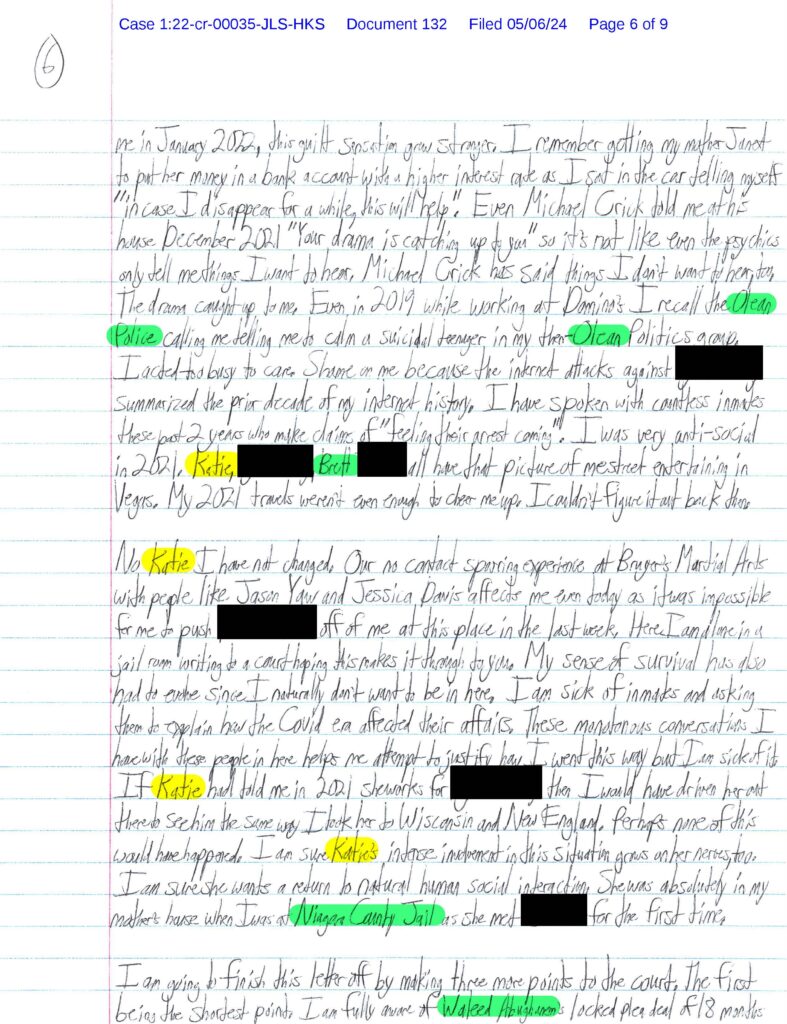 Case 1:22-cr-00035-JLS-HKS Document 132 Filed 05/06/24 Page 6 of 9
6
me in January 2022, this guilt sensation grew stronger. I remember getting my mother Janet
to put her money in a bank account with a higher interest rate as I sat in the car telling myself
"in case I disappear for a while, this will help". Even Michael Crick told me at his
house December 2021 "Your drama is catching up to you" so it's not like even the psychics
only tell me things I want to hear. Michael Crick has said things I don't want to hear, too.
The drama caught up to me. Even in 2019 while working at Domino's I recall the Olean
Police calling me telling me to calm a suicidal teenager in my then-Olean Politics group.
I acted too busy to care. Shame on me because the internet attacks against
summarized the prior decade of my internet history. I have spoken with countless inmates
these past 2 years who make claims of "feeling their arrest coming". I was very anti-social
in 2021. Katie, Brett all have that picture of me street entertaining in
Vegas. My 2021 travels weren't even enough to cheer me up. I couldn't figure it out back then.
No Katie I have not changed. Our no contact sparring experience at Bruger's Martial Arts
with people like Jason Yaw and Jessica Davis affects me even today as it was impossible
for me to push off of me at this place in the last week. Here I am alone in a
jail room writing to a court hoping this makes it through to you. My sense of survival has also
had to evolve since I naturally don't want to be in here. I am sick of inmates and asking
them to explain how the Covid era affected their affairs. These monotonous conversations I
have with these people in here helps me attempt to justify how I went this way but I am sick of it.
If Katie had told me in 2021 she works for then I would have driven her out
there to see him the same way I took her to Wisconsin and New England. Perhaps none of this
would have happened. I am sure Katie's intense involvement in this situation grows on her nerves, too.
I am sure she wants a return to natural human social interaction. She was absolutely in my
mother's house when I was at Niagara County Jail as she met for the first time.
I am going to finish this letter off by making three more points to the court. The first
being the shortest point. I am fully aware of Waleed Abughanem's locked plea deal of 18 months